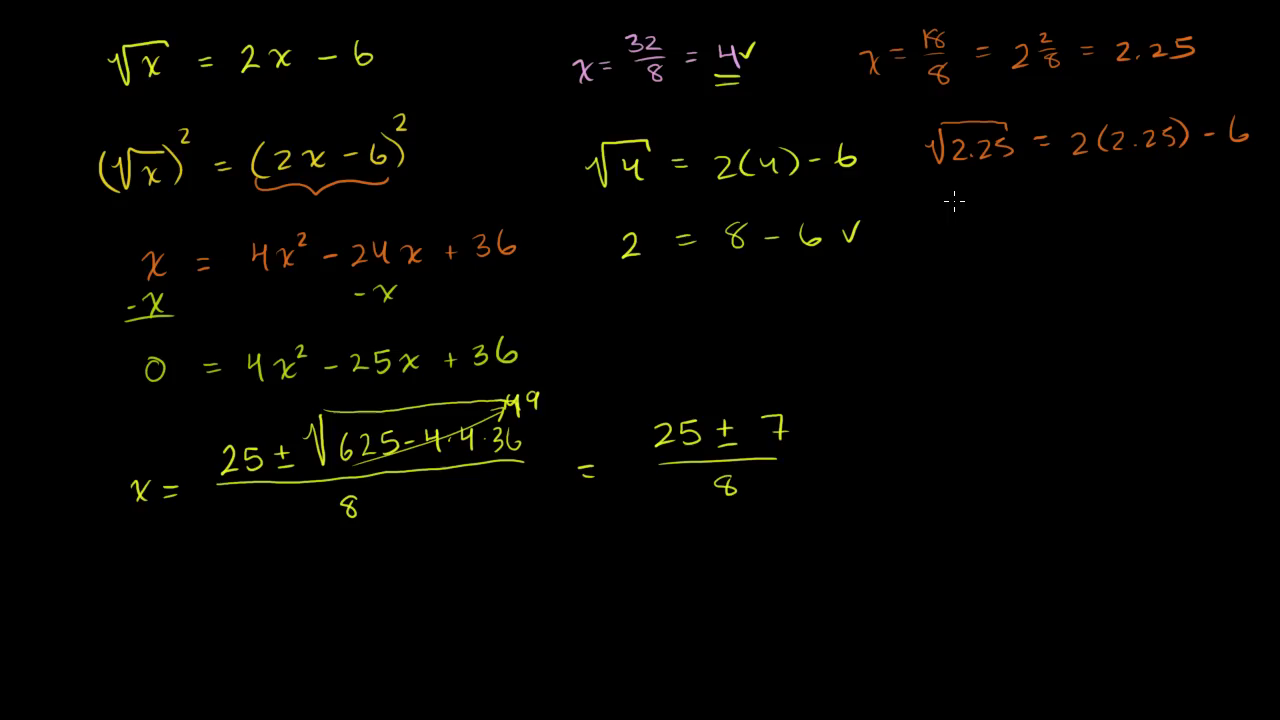 √x = 2x - 6
(√x)² = (2x - 6)²
x = 4x² - 24x + 36
-x - x
0 = 4x² - 25x + 36
x = (25 ± √(625 - 4·4·36))/8 = (25 ± 7)/8
49
x = 32/8 = 4 ✓
√4 = 2(4) - 6
2 = 8 - 6 ✓
x = 18/8 = 2 2/8 = 2.25
√2.25 = 2(2.25) - 6